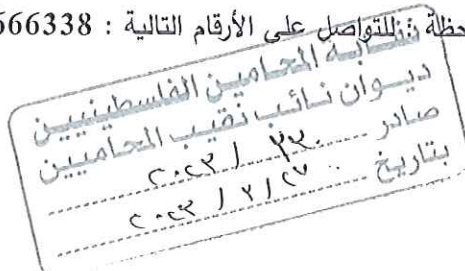 حظة : للتواصل على الأرقام التالية : 666338
نقابة المحامين الفلسطينيين
ديوان نائب نقيب المحاميين
صادر ٢٣٠ / ٢٠٢٣
بتاريخ ٢٧ / ٢ / ٢٠٢٣